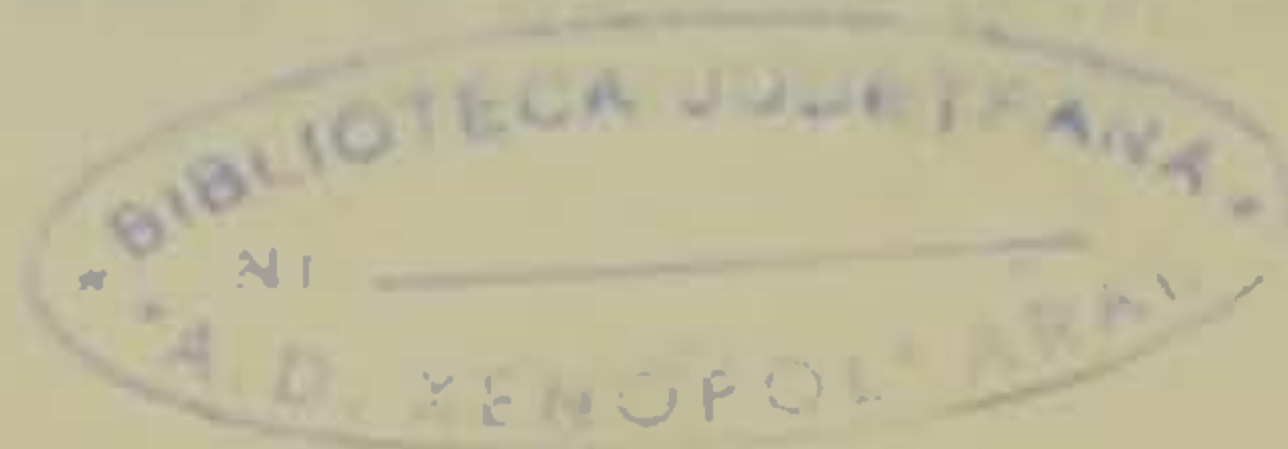 BIBLIOTECA JUDEȚEANĂ
Nr
"A.D. XENOPOL" ARAD